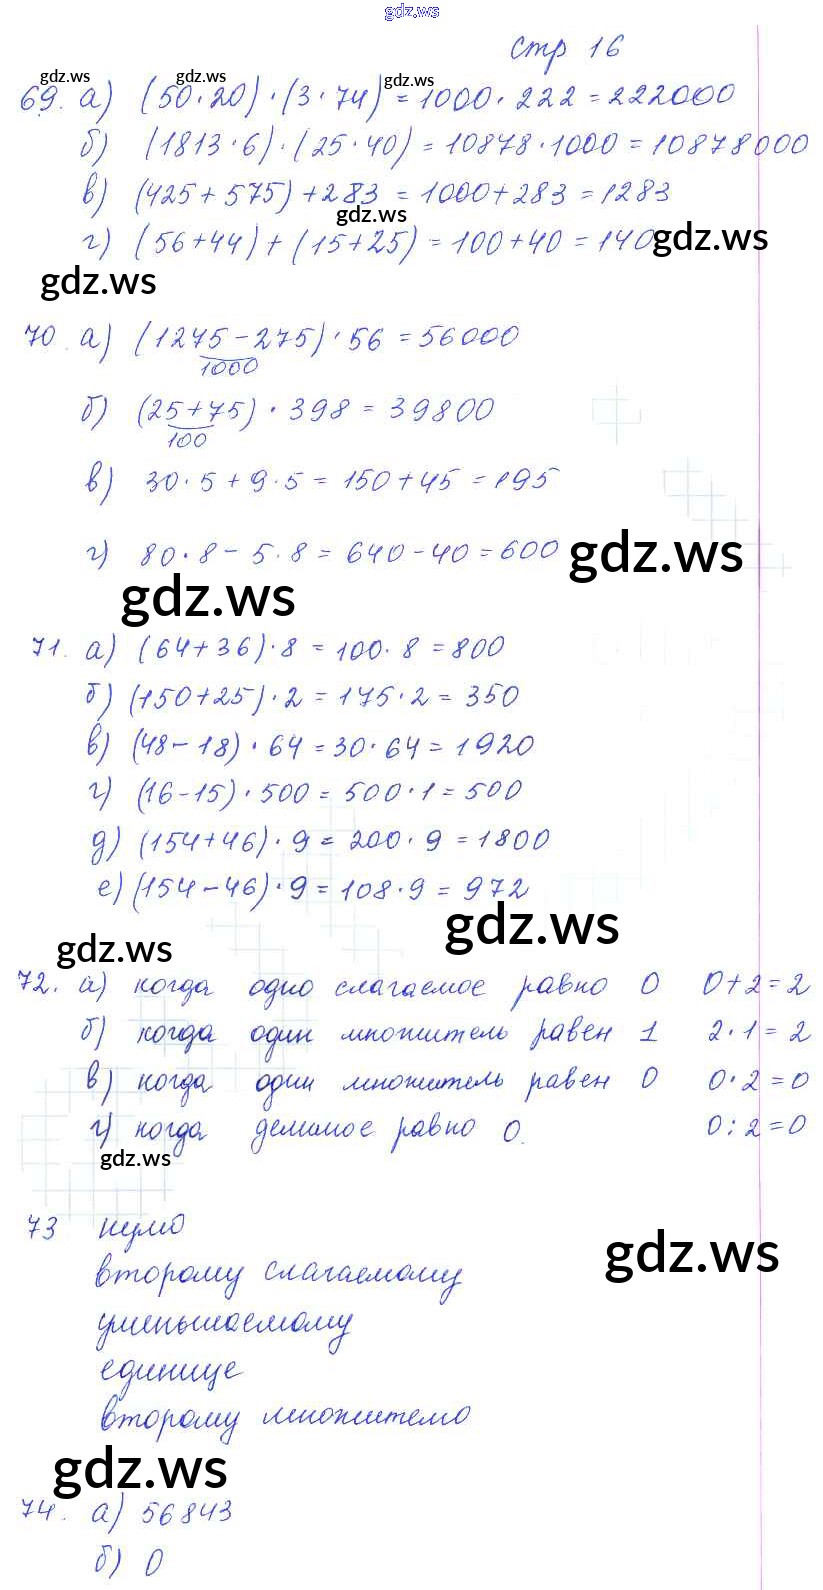 gdz.ws
стр 16
gdz.ws gdz.ws gdz.ws
69. а) (50·20)·(3·74)=1000·222=222000
б) (1813·6)·(25·40)=10878·1000=10878000
в) (425+575)+283=1000+283=1283
gdz.ws
г) (56+44)+(15+25)=100+40=140
gdz.ws
gdz.ws
70. а) (1275-275)·56=56000
1000
б) (25+75)·398=39800
100
в) 30·5+9·5=150+45=195
г) 80·8-5·8=640-40=600
gdz.ws
gdz.ws
71. а) (64+36)·8=100·8=800
б) (150+25)·2=175·2=350
в) (48-18)·64=30·64=1920
г) (16-15)·500=500·1=500
д) (154+46)·9=200·9=1800
е) (154-46)·9=108·9=972
gdz.ws
gdz.ws
72. а) когда одно слагаемое равно 0 0+2=2
б) когда один множитель равен 1 2·1=2
в) когда один множитель равен 0 0·2=0
г) когда делимое равно 0. 0:2=0
gdz.ws
73 нулю
gdz.ws
второму слагаемому
уменьшаемому
единице
второму множителю
gdz.ws
74. а) 56843
б) 0